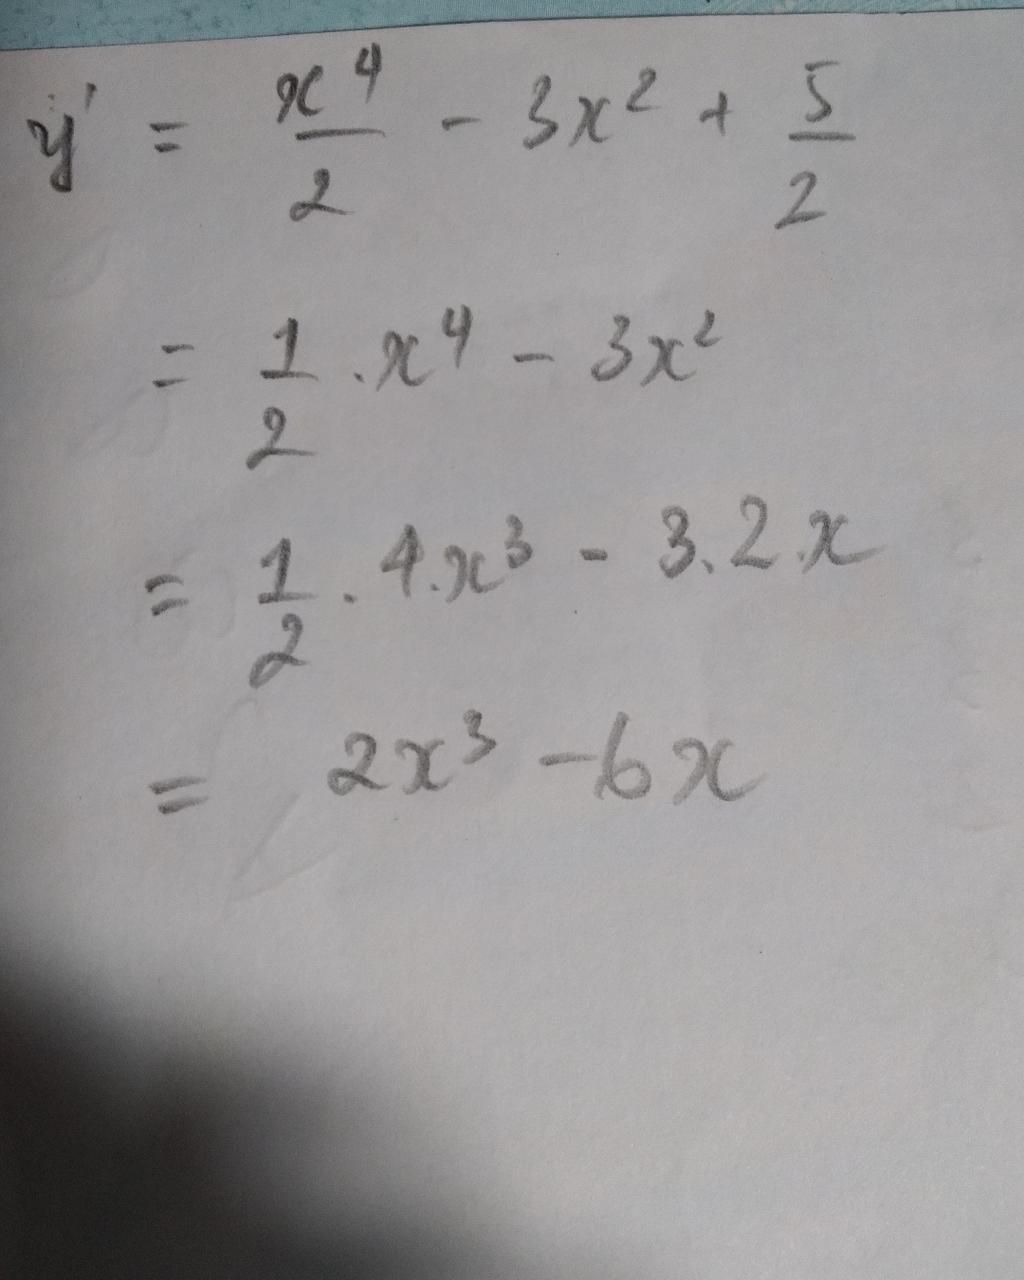 y' = x⁴/2 - 3x² + 5/2
= 1/2 . x⁴ - 3x²
= 1/2 . 4.x³ - 3.2.x
= 2x³ - 6x